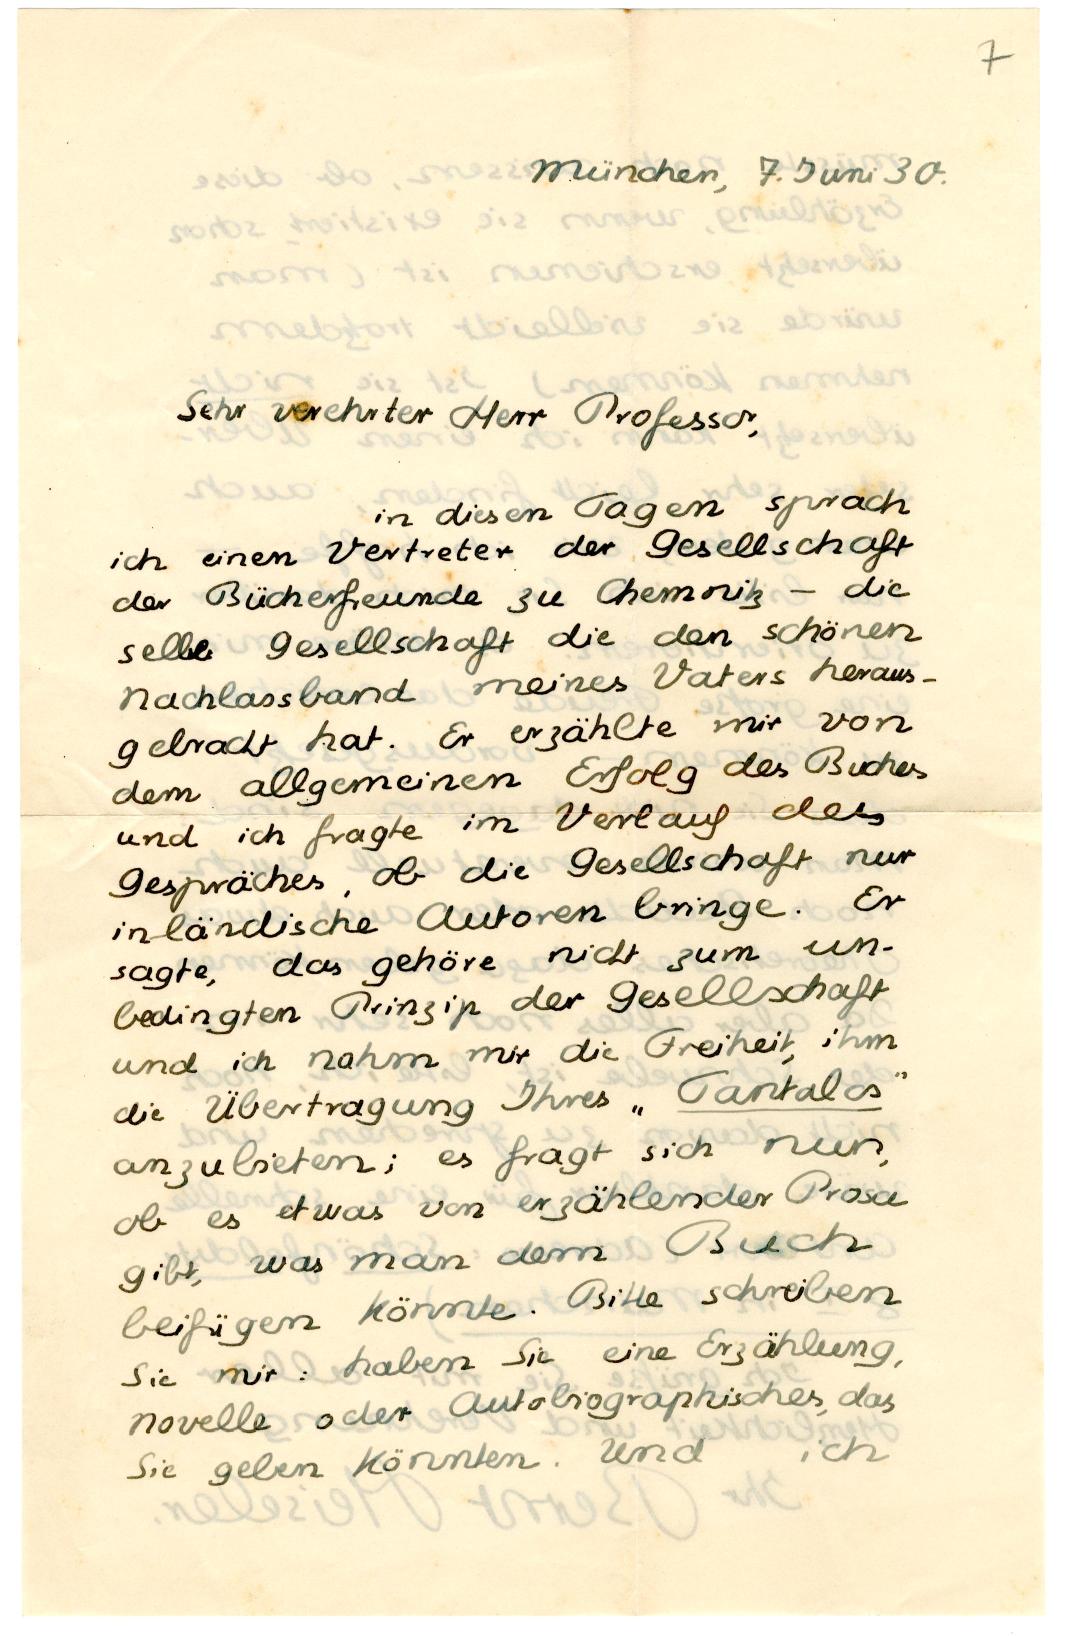 7
München, 7. Juni 30.
Sehr verehrter Herr Professor,
in diesen Tagen sprach
ich einen Vertreter der Gesellschaft
der Bücherfreunde zu Chemnitz – die
selbe Gesellschaft die den schönen
Nachlassband meines Vaters heraus-
gebracht hat. Er erzählte mir von
dem allgemeinen Erfolg des Buches
und ich fragte im Verlauf des
Gespräches, ob die Gesellschaft nur
inländische Autoren bringe. Er
sagte, das gehöre nicht zum un-
bedingten Prinzip der Gesellschaft
und ich nahm mir die Freiheit, ihm
die Übertragung Ihres „Tantalos"
anzubieten; es fragt sich nun,
ob es etwas von erzählender Prosa
gibt, was man dem Buch
beifügen könnte. Bitte schreiben
Sie mir: haben Sie eine Erzählung,
Novelle oder Autobiographisches, das
Sie geben könnten. Und ich